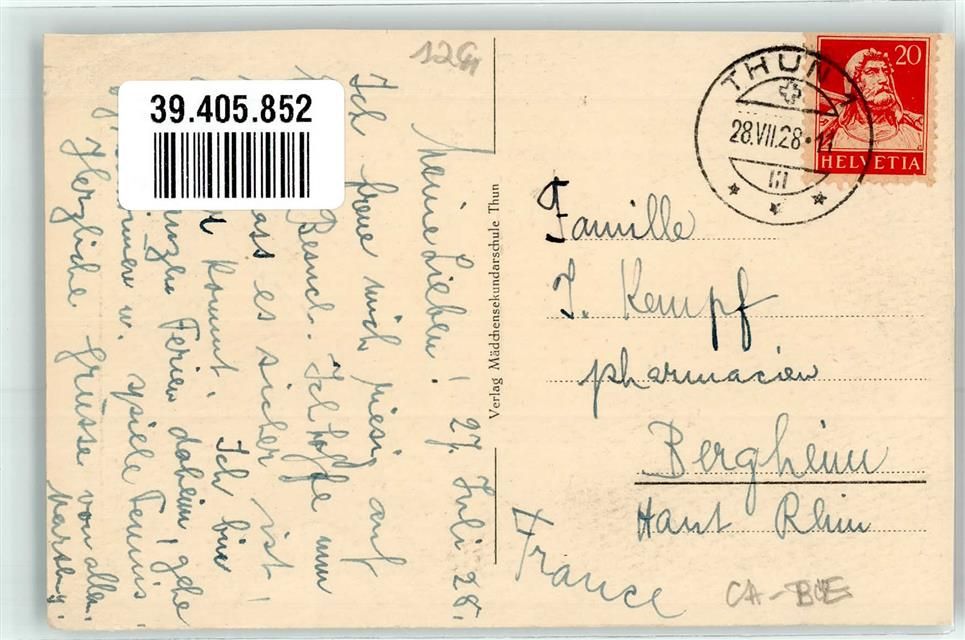 12G
39.405.852
Meine Lieben! 27. Juli 28.
Ich freue mich riesig auf
Besuch. Ich hoffe nun
dass es sicher ist
kommt. Ich bin
ganzen Ferien daheim! gehe
u. spiele Tennis
Herzliche Grüsse von allen.
Verlag Mädchensekundarschule Thun
THUN 1
28.VII.28·11
III
20
HELVETIA
Famille
J. Kempf
pharmacien
Bergheim
Haut Rhin
France
CA-BÜE